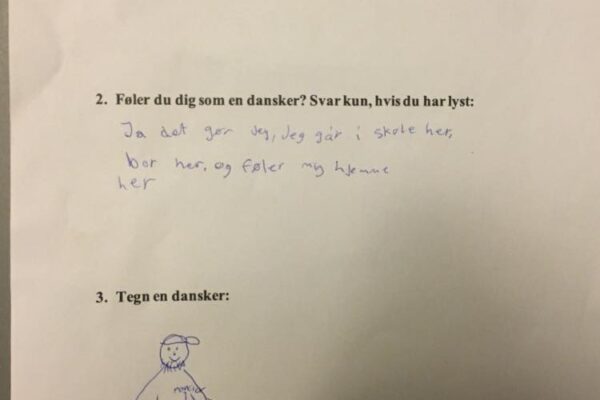 2. Føler du dig som en dansker? Svar kun, hvis du har lyst:
Ja det gør jeg, Jeg går i skole her,
bor her, og føler mig hjemme
her
3. Tegn en dansker: